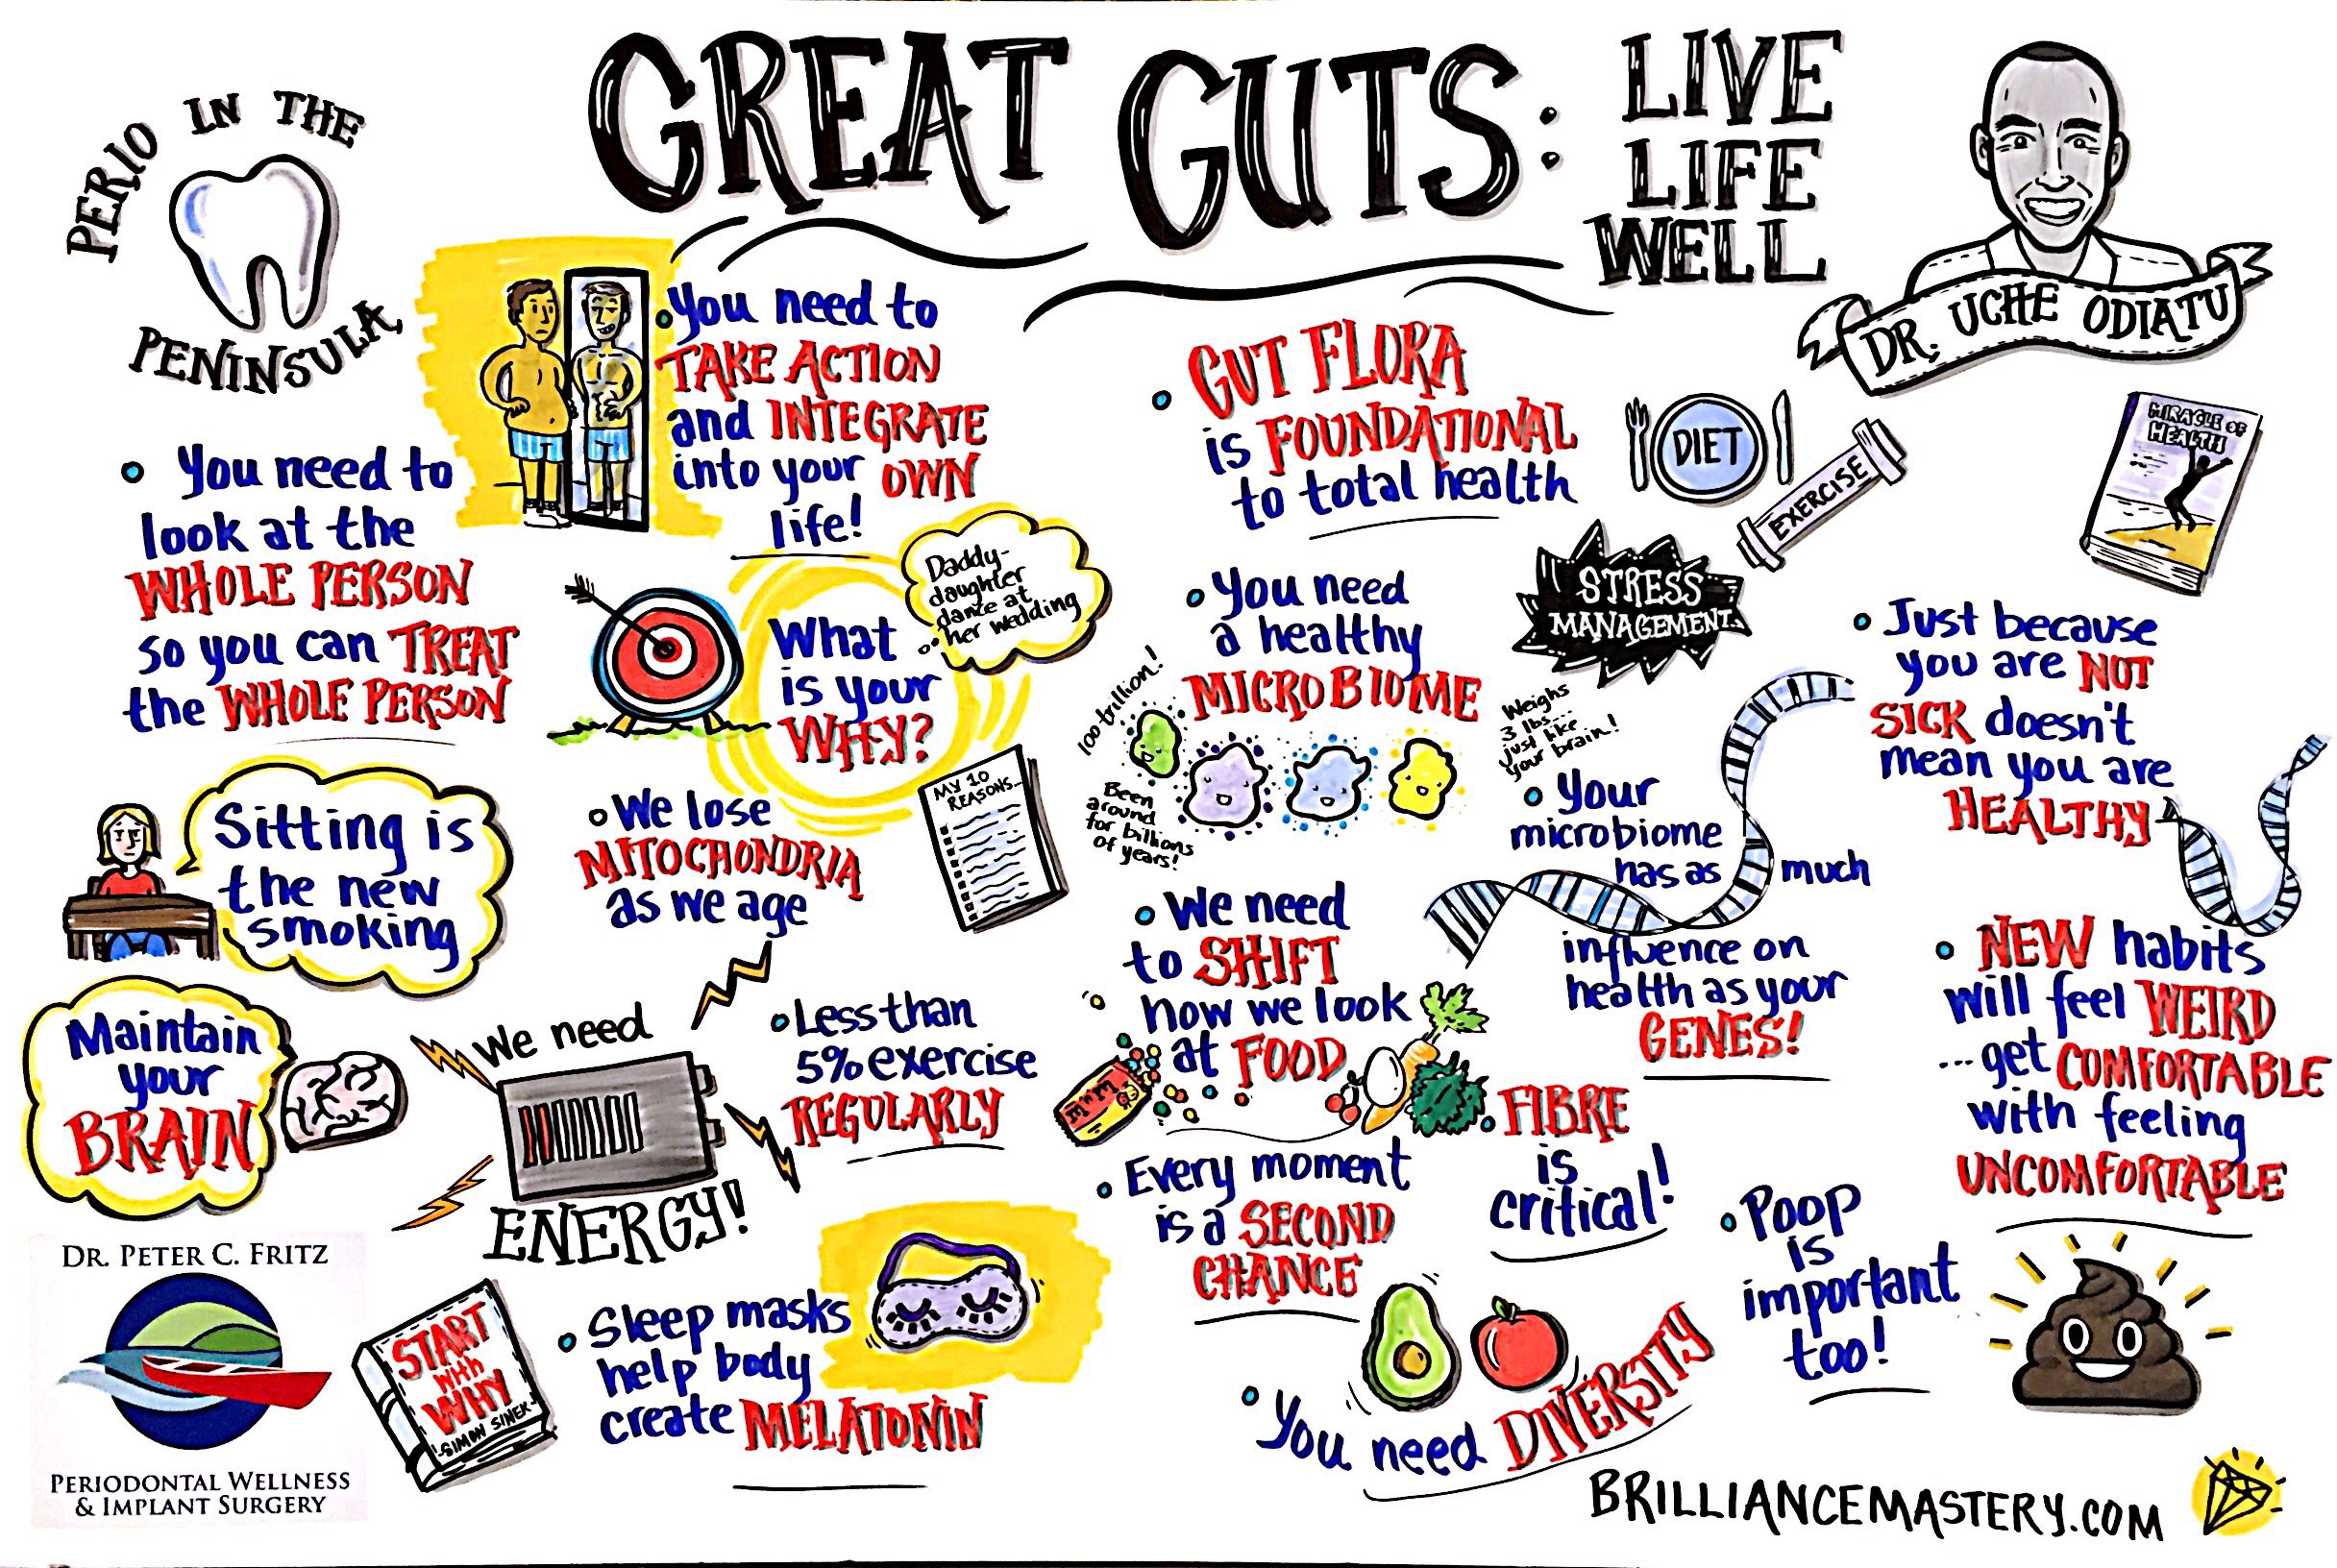 GREAT GUTS:
LIVE
LIFE
WELL
PERIO IN THE
PENINSULA
DR. UCHE ODIATU
You need to
TAKE ACTION
and INTEGRATE
into your OWN
life!
You need to
look at the
WHOLE PERSON
so you can TREAT
the WHOLE PERSON
What
is your
WHY?
Daddy-
daughter
dance at
her wedding
MY 10
REASONS...
Sitting is
the new
smoking
We lose
MITOCHONDRIA
as we age
Maintain
your
BRAIN
We need
ENERGY!
Less than
5% exercise
REGULARLY
Sleep masks
help body
create MELATONIN
START
with
WHY
-SIMON SINEK-
DR. PETER C. FRITZ
PERIODONTAL WELLNESS
& IMPLANT SURGERY
GUT FLORA
is FOUNDATIONAL
to total health
DIET
EXERCISE
STRESS
MANAGEMENT
MIRACLE OF
HEALTH
You need
a healthy
MICROBIOME
100 trillion!
Been
around
for billions
of years!
Weighs
3 lbs...
just like
your brain!
Your
microbiome
has as much
influence on
health as your
GENES!
Just because
you are NOT
SICK doesn't
mean you are
HEALTHY
We need
to SHIFT
how we look
at FOOD
M&M
FIBRE
is
critical!
Every moment
is a SECOND
CHANCE
NEW habits
will feel WEIRD
...get COMFORTABLE
with feeling
UNCOMFORTABLE
Poop
is
important
too!
You need DIVERSITY
BRILLIANCEMASTERY.COM